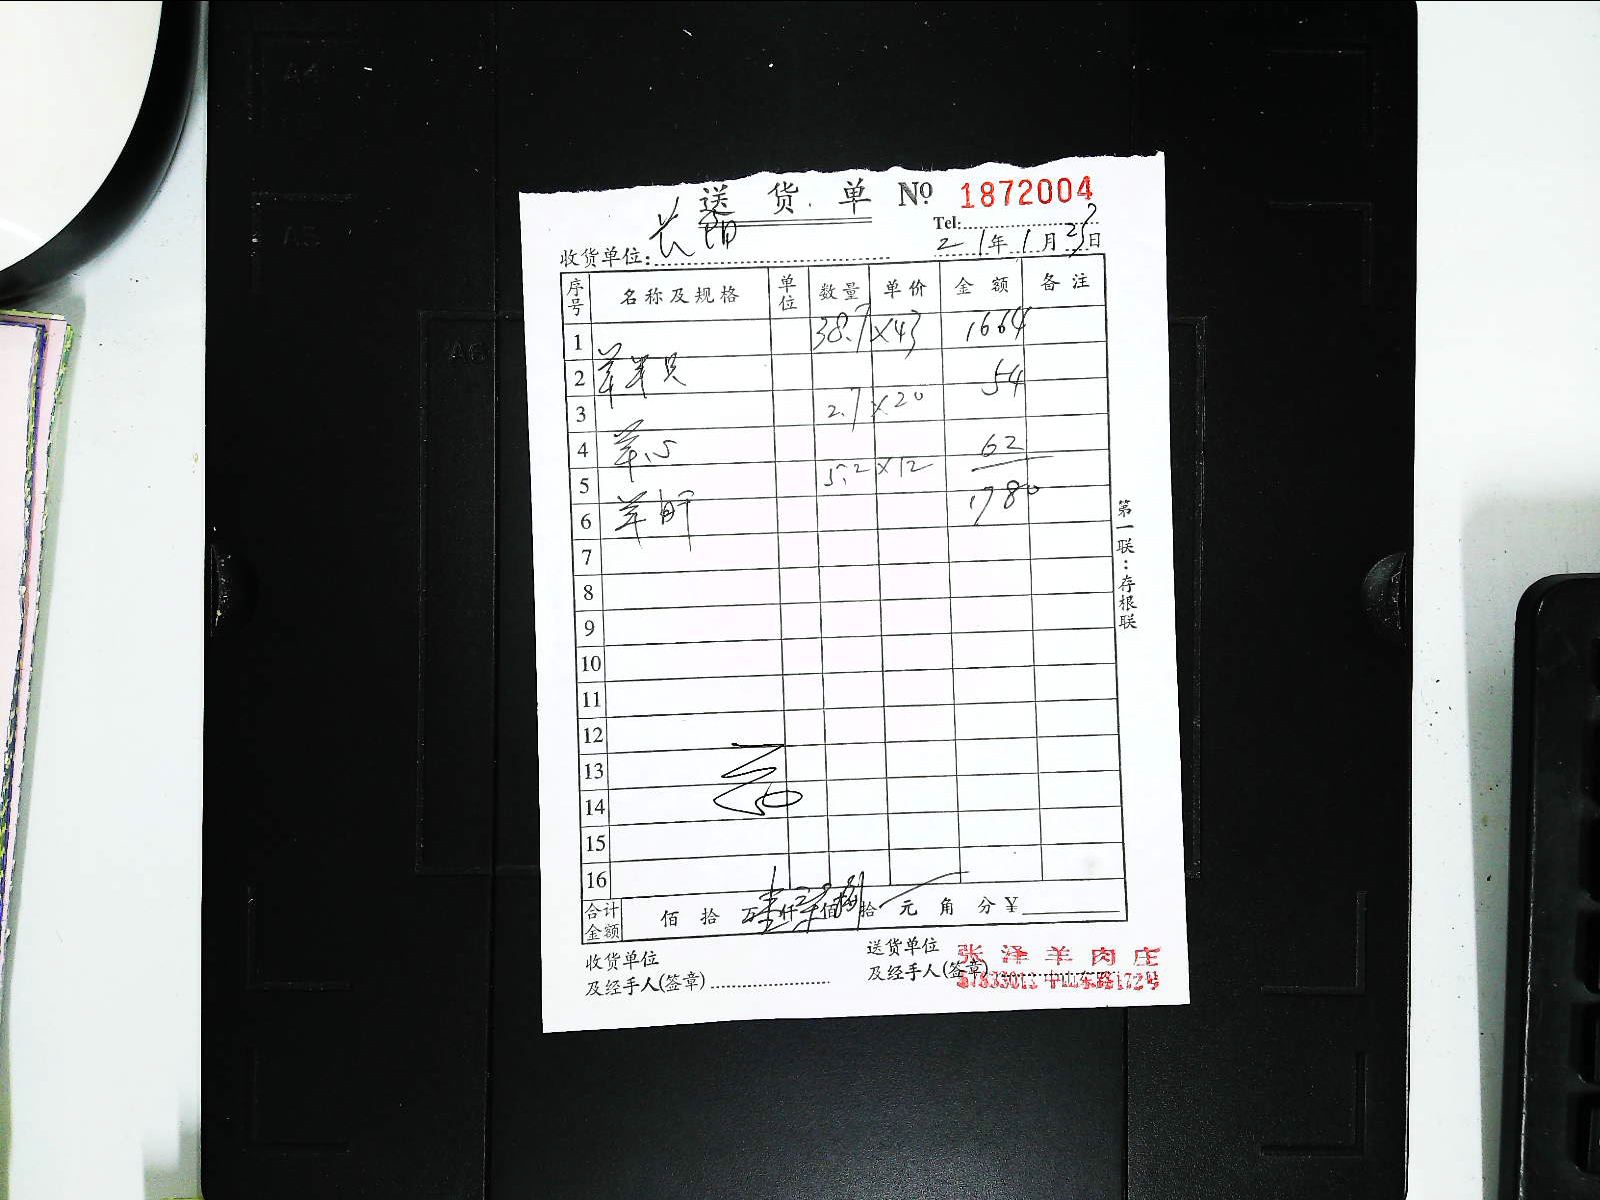 送 货 单 № 1872004
Tel:
收货单位: 长阳 21年1月25日
序号 名称及规格 单位 数量 单价 金额 备注
1 38.7 ×43 1664
2 54
3 2.7 ×20
4 羊心 62
5 5.2 ×12
6 羊肝 1780
7
8
9
10
11
12
13
14
15
16
合计金额 佰 拾 万 壹 仟 柒 佰 捌 拾 元 角 分 ¥
第一联:存根联
收货单位 送货单位
及经手人(签章) 及经手人(签章)
张泽羊肉庄
中山东路172号